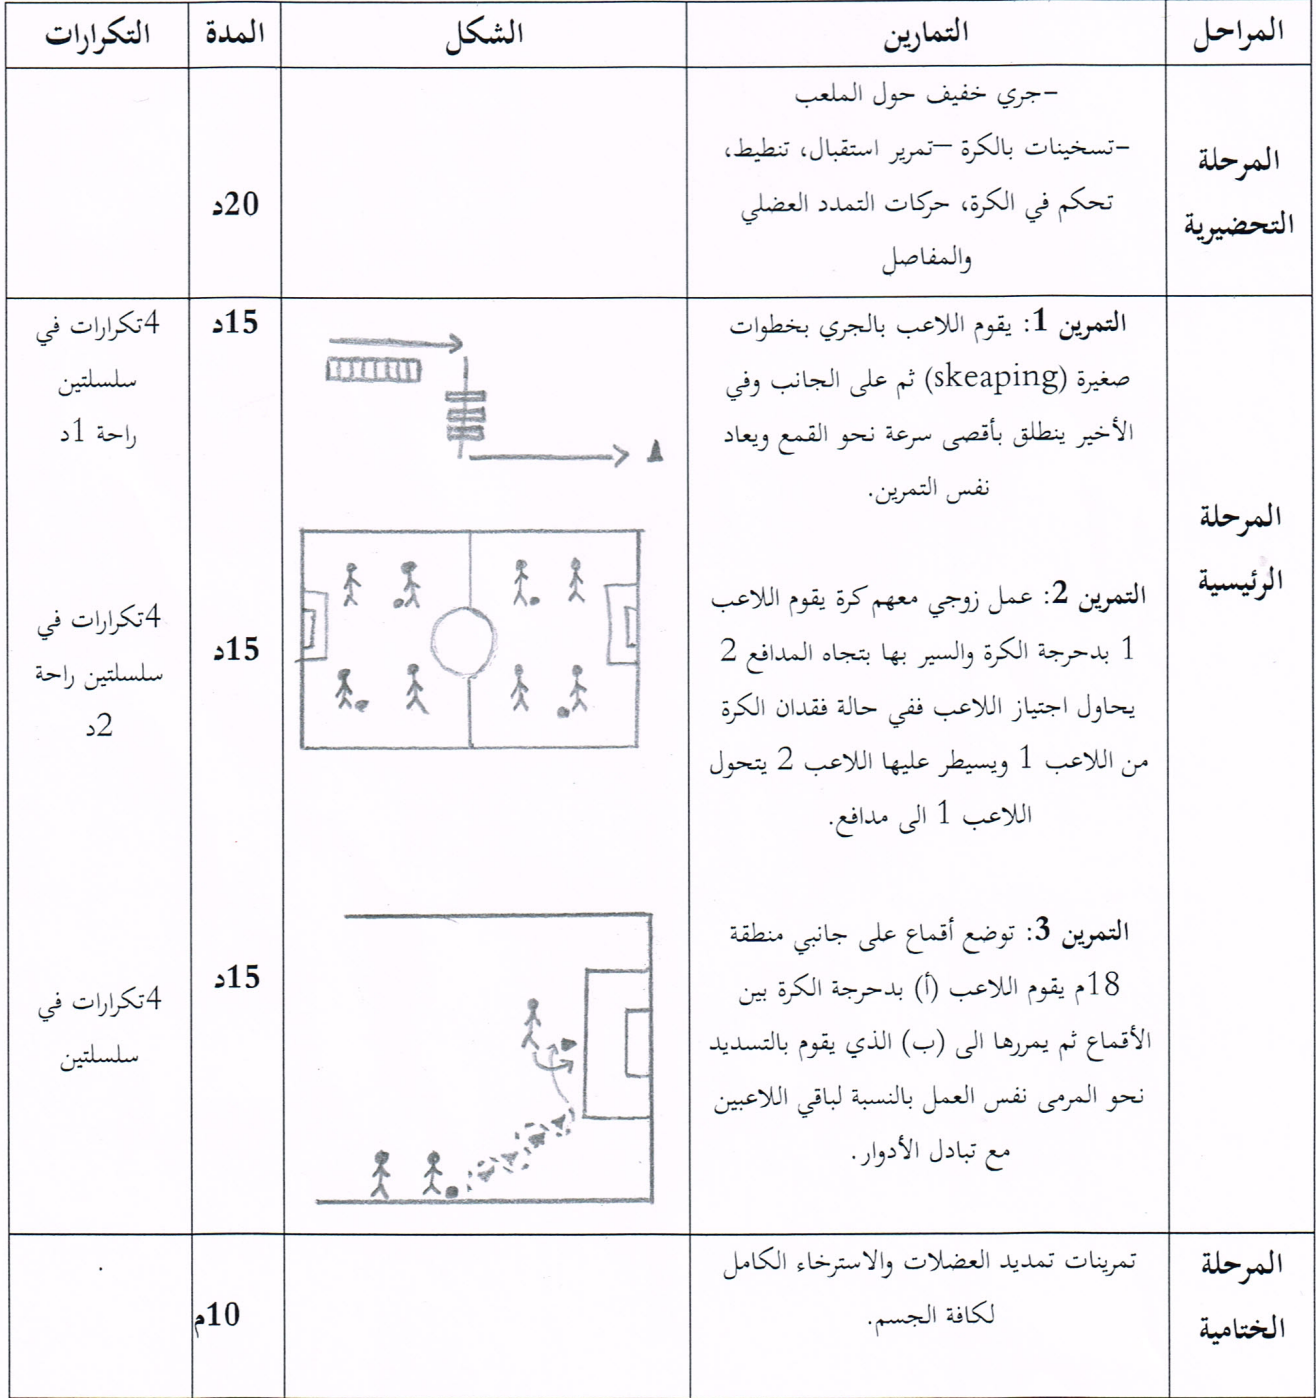 المراحل
التمارين
الشكل
المدة
التكرارات
المرحلة
التحضيرية
-جري خفيف حول الملعب
-تسخينات بالكرة –تمرير استقبال، تنطيط،
تحكم في الكرة، حركات التمدد العضلي
والمفاصل
20د
المرحلة
الرئيسية
التمرين 1: يقوم اللاعب بالجري بخطوات
صغيرة (skeaping) ثم على الجانب وفي
الأخير ينطلق بأقصى سرعة نحو القمع ويعاد
نفس التمرين.
15د
4تكرارات في
سلسلتين
راحة 1د
التمرين 2: عمل زوجي معهم كرة يقوم اللاعب
1 بدحرجة الكرة والسير بها بتجاه المدافع 2
يحاول اجتياز اللاعب ففي حالة فقدان الكرة
من اللاعب 1 ويسيطر عليها اللاعب 2 يتحول
اللاعب 1 الى مدافع.
15د
4تكرارات في
سلسلتين راحة
2د
التمرين 3: توضع أقماع على جانبي منطقة
18م يقوم اللاعب (أ) بدحرجة الكرة بين
الأقماع ثم يمررها الى (ب) الذي يقوم بالتسديد
نحو المرمى نفس العمل بالنسبة لباقي اللاعبين
مع تبادل الأدوار.
15د
4تكرارات في
سلسلتين
المرحلة
الختامية
تمرينات تمديد العضلات والاسترخاء الكامل
لكافة الجسم.
10م